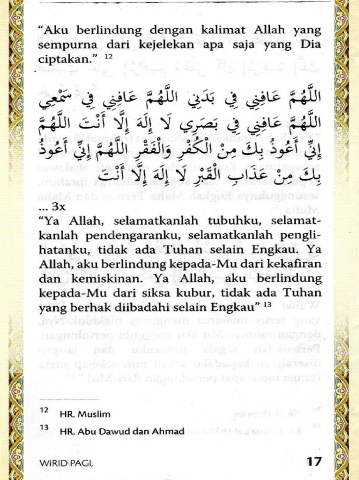 “Aku berlindung dengan kalimat Allah yang
sempurna dari kejelekan apa saja yang Dia
ciptakan.” 12
اللَّهُمَّ عَافِنِي فِي بَدَنِي اللَّهُمَّ عَافِنِي فِي سَمْعِي
اللَّهُمَّ عَافِنِي فِي بَصَرِي لَا إِلَهَ إِلَّا أَنْتَ اللَّهُمَّ
إِنِّي أَعُوذُ بِكَ مِنْ الْكُفْرِ وَالْفَقْرِ اللَّهُمَّ إِنِّي أَعُوذُ
بِكَ مِنْ عَذَابِ الْقَبْرِ لَا إِلَهَ إِلَّا أَنْتَ
... 3x
“Ya Allah, selamatkanlah tubuhku, selamat-
kanlah pendengaranku, selamatkanlah pengli-
hatanku, tidak ada Tuhan selain Engkau. Ya
Allah, aku berlindung kepada-Mu dari kekafiran
dan kemiskinan. Ya Allah, aku berlindung
kepada-Mu dari siksa kubur, tidak ada Tuhan
yang berhak diibadahi selain Engkau” 13
12 HR. Muslim
13 HR. Abu Dawud dan Ahmad
WIRID PAGI,
17